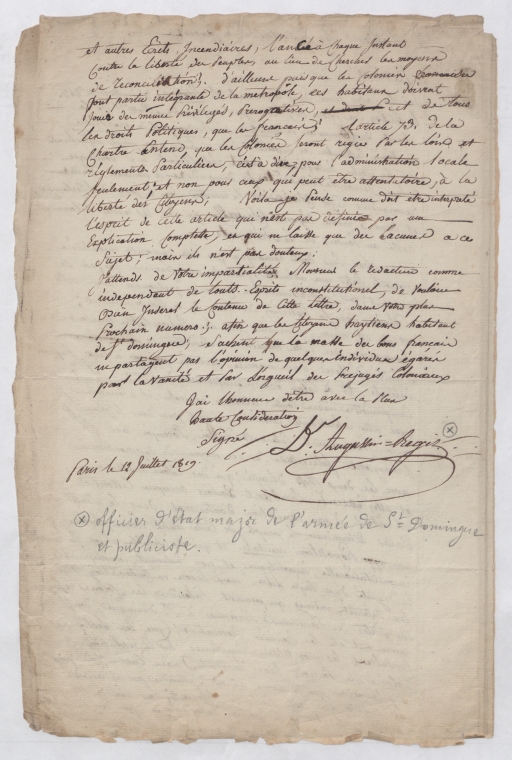 et autres Ecrits Incendiaires, l'ancié à chaque Instant
Contre la liberté des peuples, au lieu de Chercher les moyens
de reconciliation. D'ailleurs puisque les Colonies
font partie intégrante de la metropole, ces habitans doivent
Jouir des meme Privilèges, Prerogatives, et de tous
les droits Politiques, que les francais; l'article 73. de la
Chartre entend, que les Colonies seront régies Par les Loix et
reglements Particuliers, c'est à dire; pour l'administration locale
seulement et non pour ceux qui peut être attentatoire à la
liberté des Citoyens; Voila je Pense comme doit être interprété
l'esprit de cette article qui n'est pas définie par un
Explication Complette, et qui ne laisse que des lacunes a ce
Sujet; mais ils n'est pas douteux:
J'attends de Votre impartialité Monsieur le redacteur comme
independant de touts Esprits inconstitutionel, de vouloir
bien Inserer le Contenu de Cette lettre, dans Votre plus
Prochain numero; afin que les Citoyens haytiens habitant
de St domingue, sachent que la masse des bons français
ne partagent pas l'opinion de quelques Individus égarés
par la Vanité et Par l'orgueil des Prejugés Coloniaux
J'ai l'honneur d'être avec la Plus
haute Considération
Signé
Dr. Augustin=Regis ⊗
Paris le 12 Juillet 1819.
⊗ officier d'état major de l'armée de St Domingue
et publiciste.